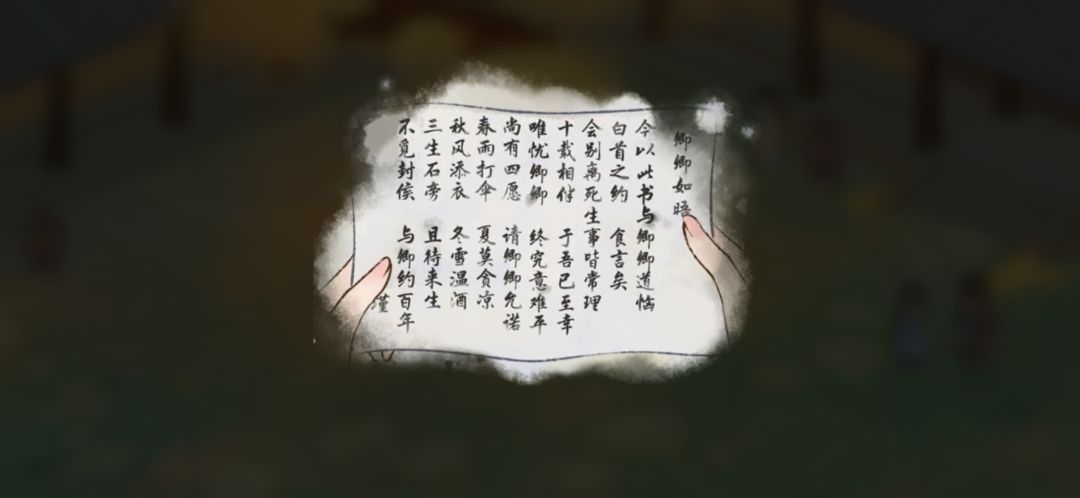 卿卿如晤
今以此书与卿卿道恼
白首之约 食言矣
会别离死生事皆常理
十载相伴 于吾已至幸
唯忧卿卿 终究意难平
尚有四愿 请卿卿允诺
春雨打伞 夏莫贪凉
秋风添衣 冬雪温酒
三生石旁 且待来生
不觅封侯 与卿约百年
谨